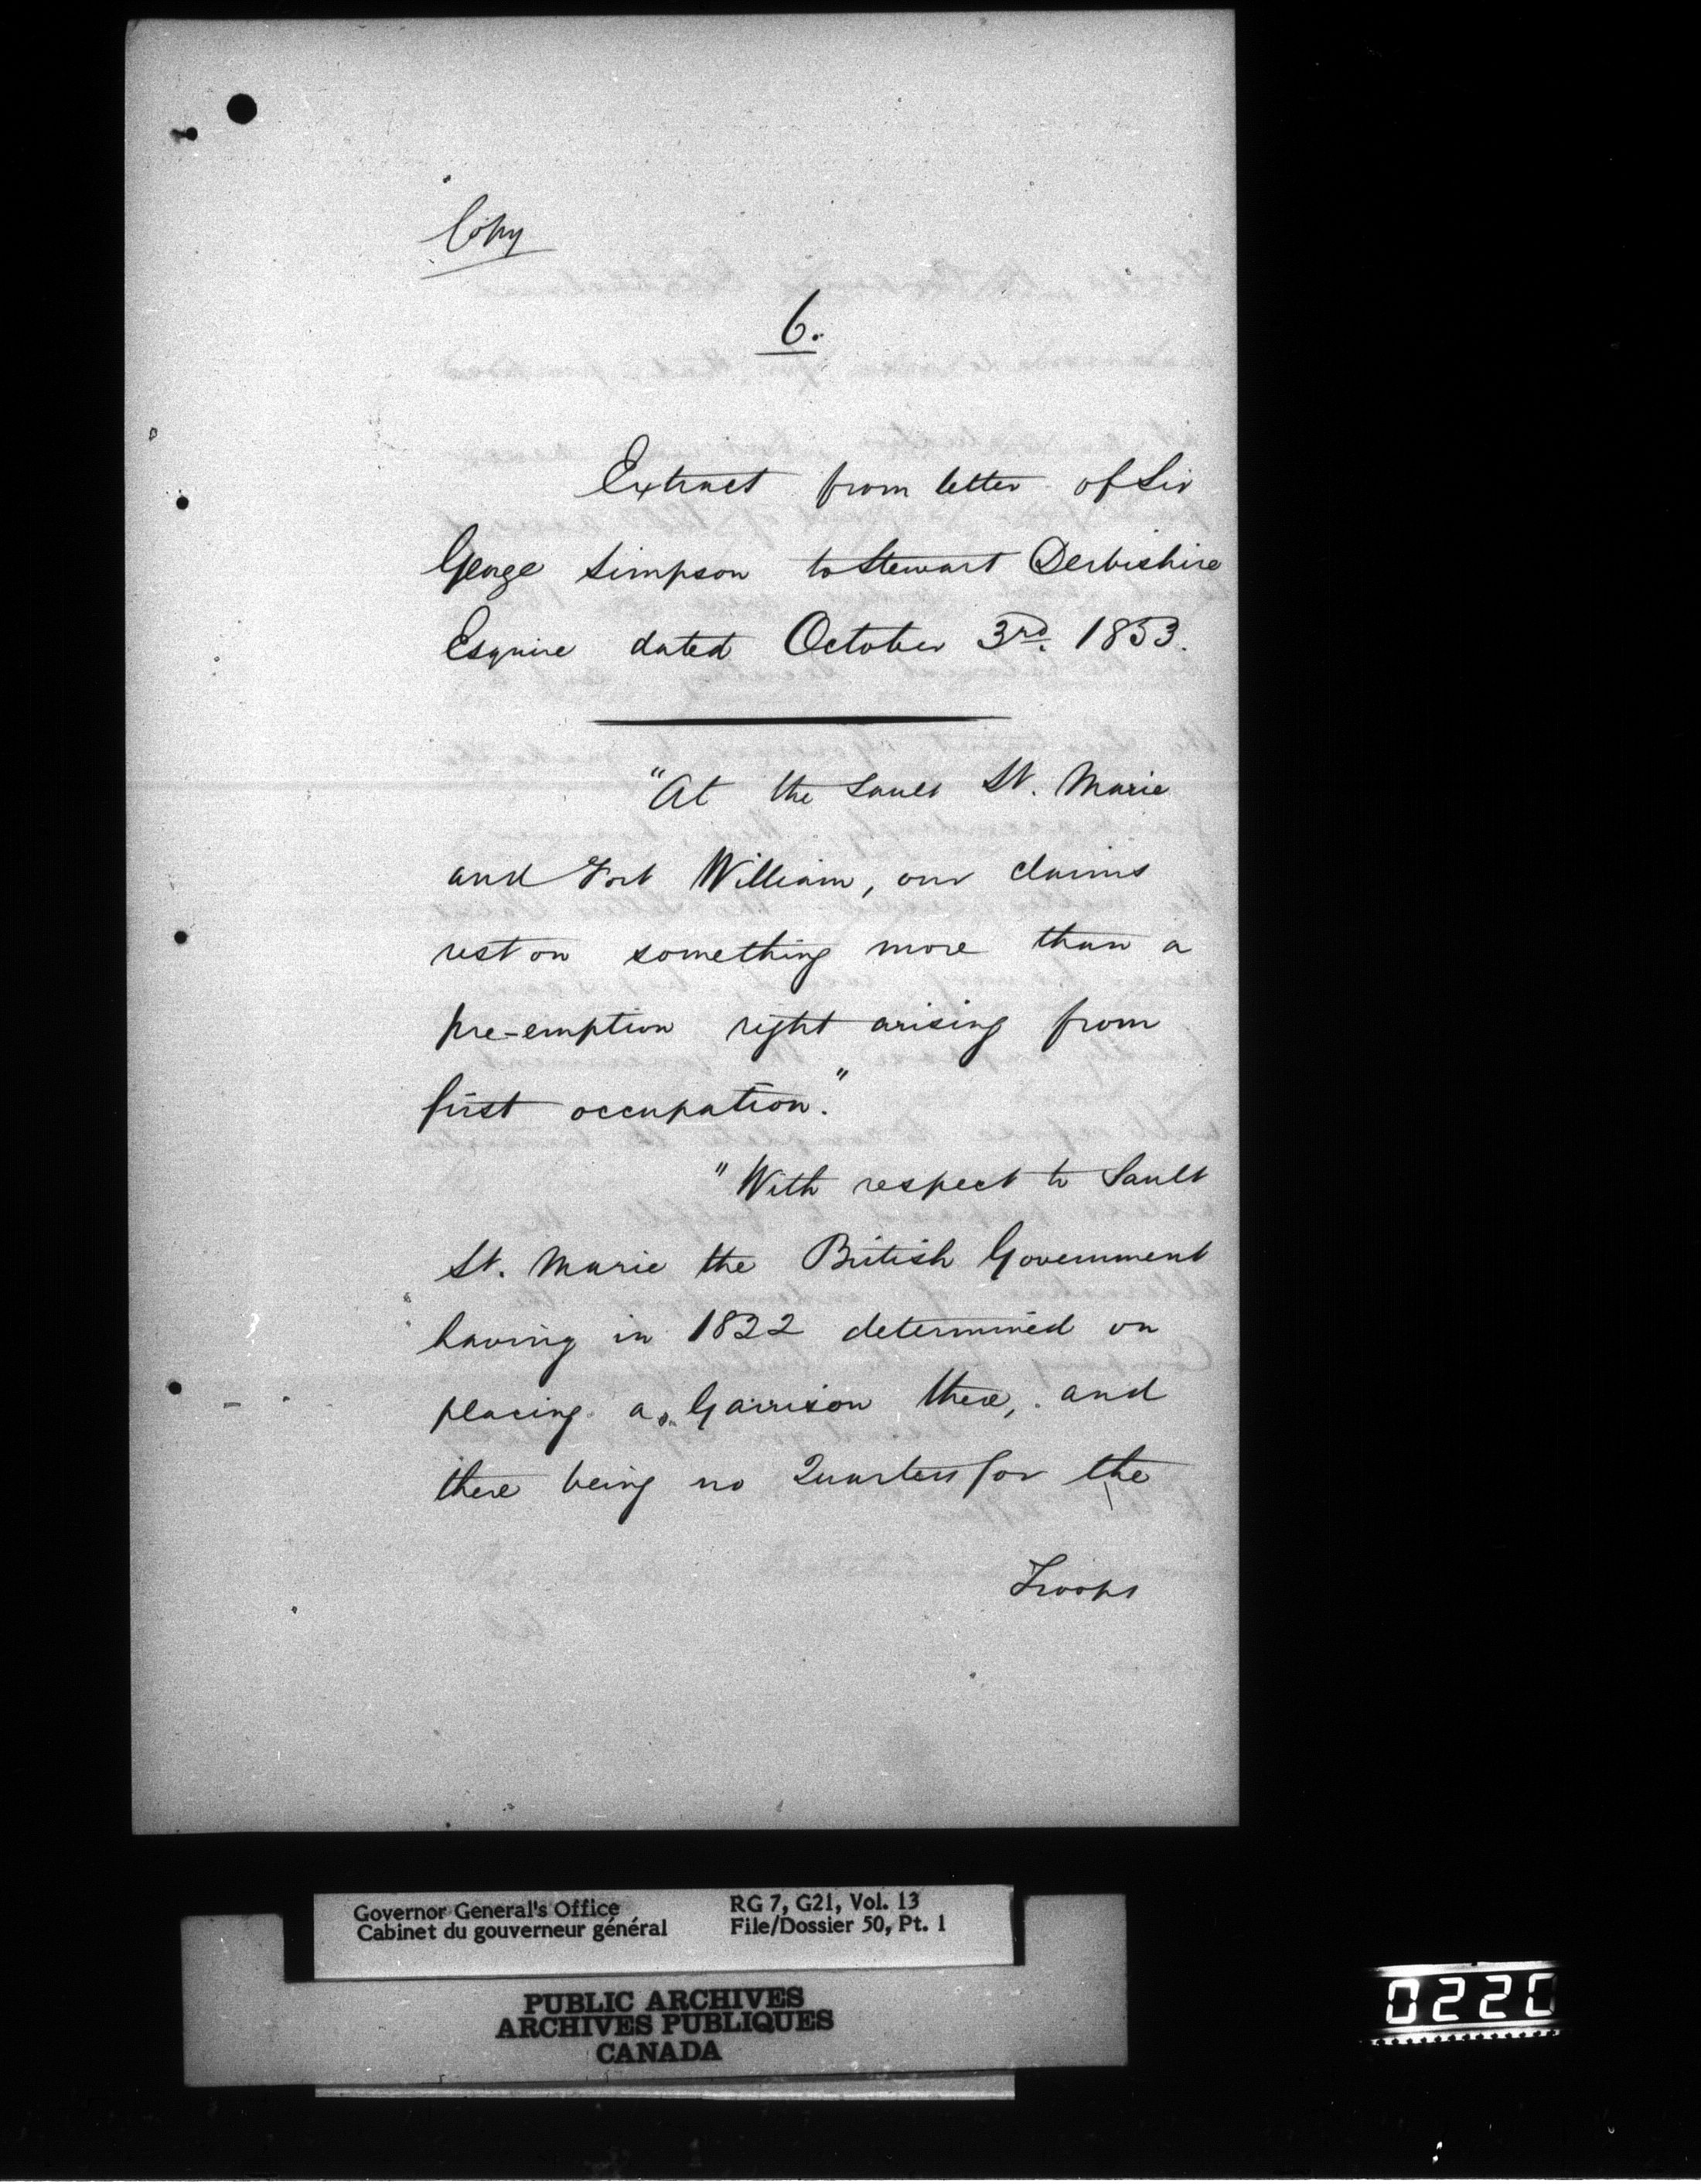 Copy
6.
Extract from letter of Sir
George Simpson to Stewart Derbishire
Esquire dated October 3rd. 1853.
"At the Sault St. Marie
and Fort William, our claims
rest on something more than a
pre-emption right arising from
first occupation."
"With respect to Sault
St. Marie the British Government
having in 1822 determined on
placing a Garrison there, and
there being no Quarters for the
Troops
Governor General's Office
Cabinet du gouverneur général
RG 7, G21, Vol. 13
File/Dossier 50, Pt. 1
PUBLIC ARCHIVES
ARCHIVES PUBLIQUES
CANADA
0220